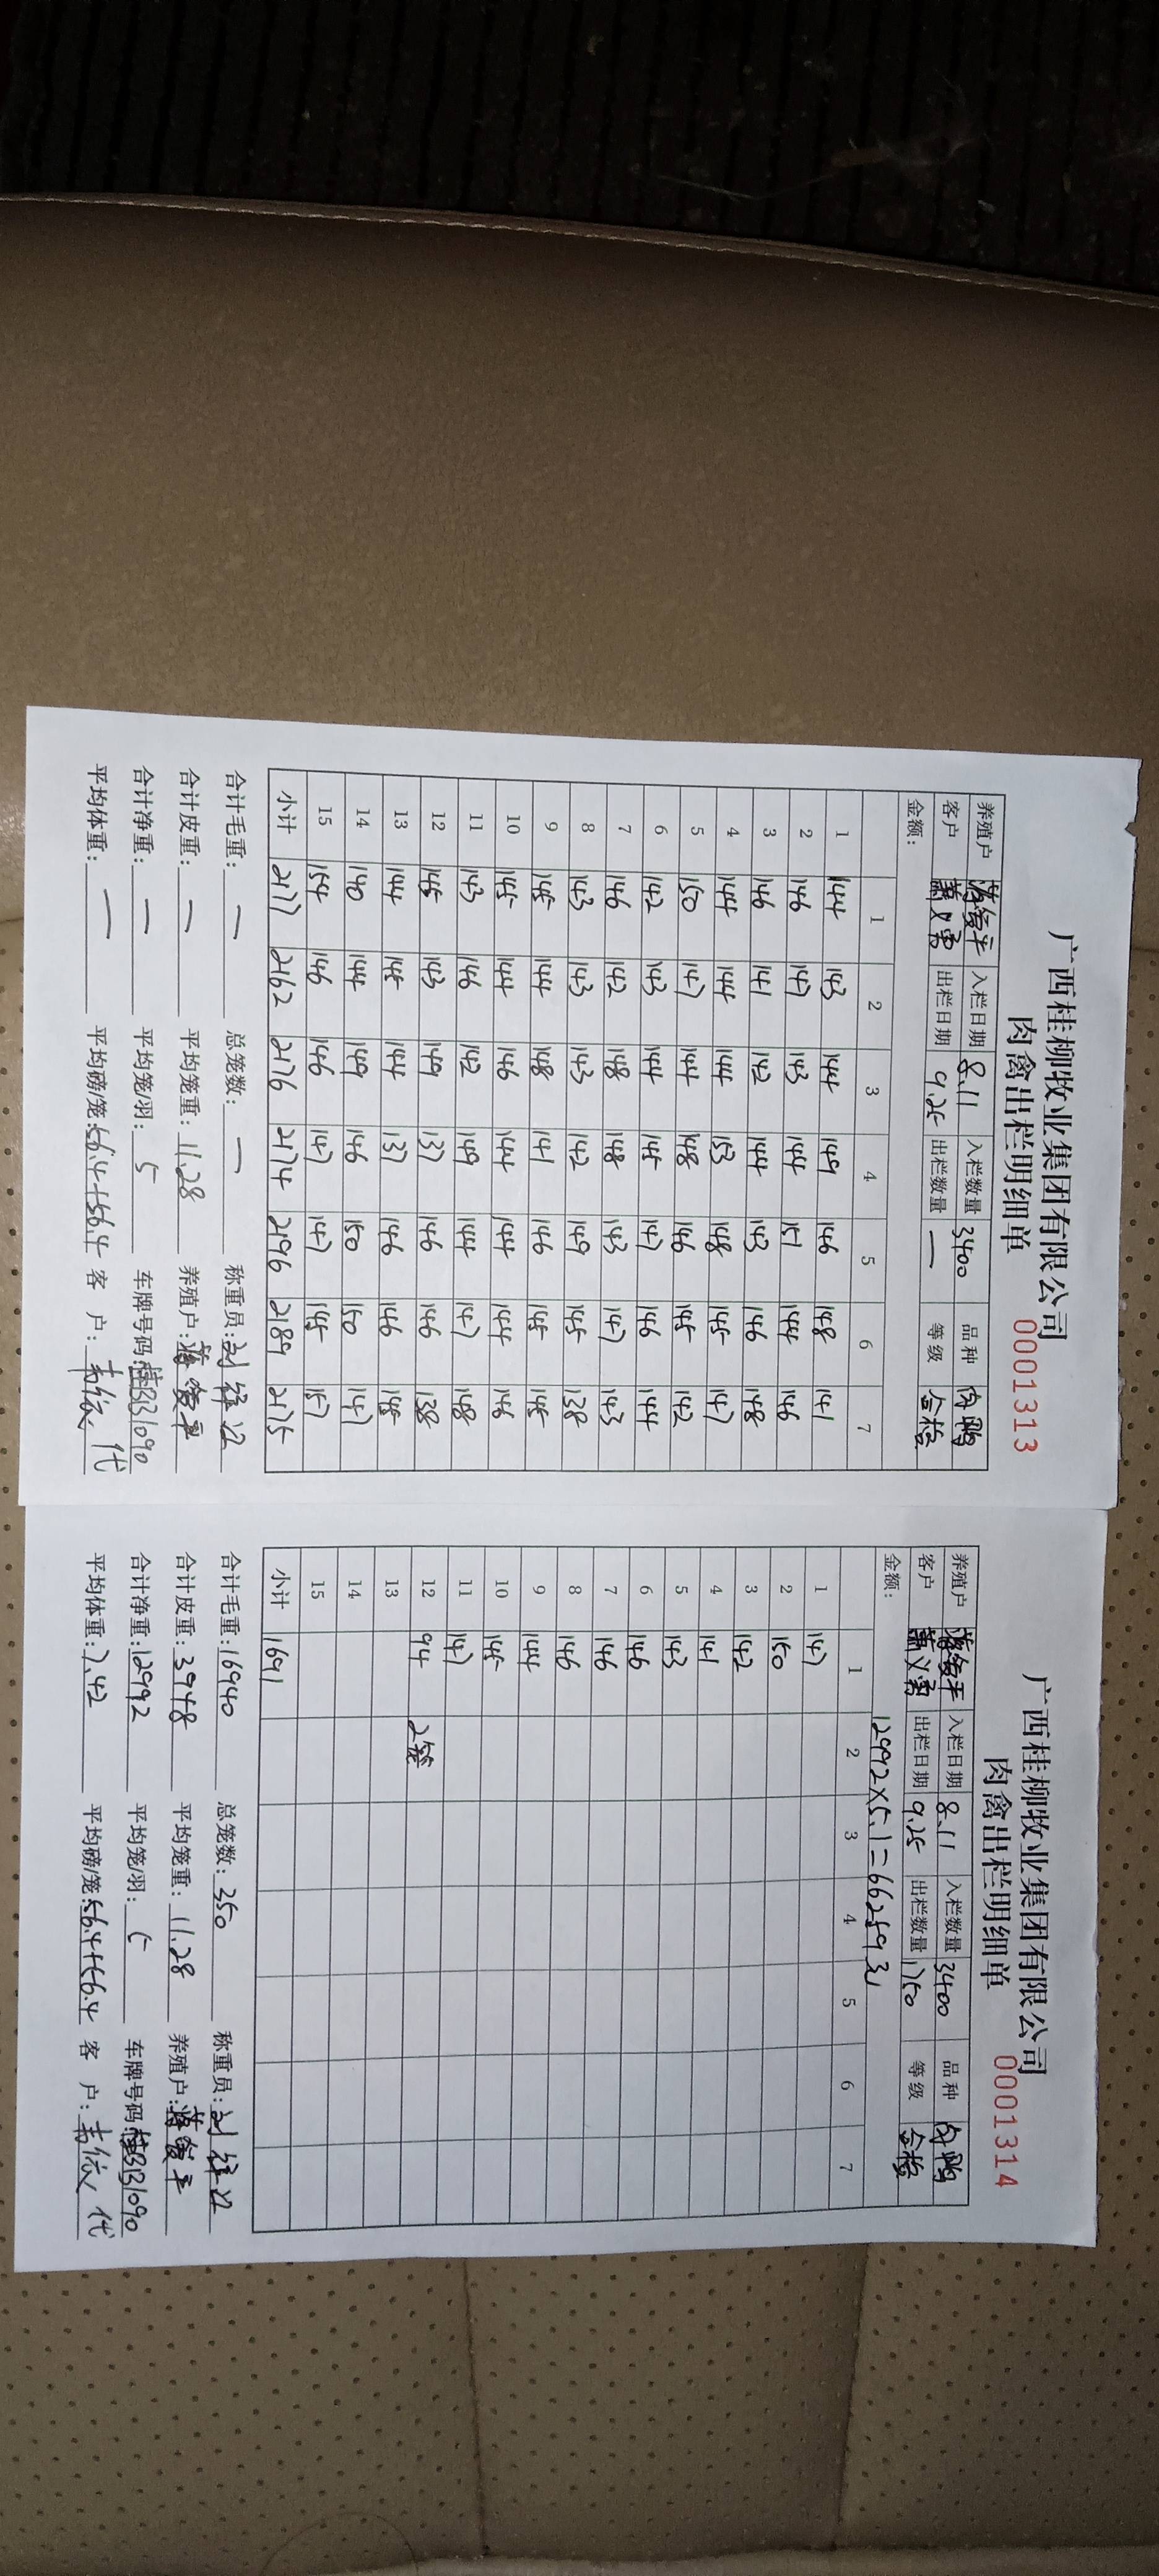 广西桂柳牧业集团有限公司
肉禽出栏明细单 0001313
养殖户 入栏日期 8.11 入栏数量 3400 品种 肉鸭
客户 出栏日期 9.25 出栏数量 — 等级 合格
金额:
1 2 3 4 5 6 7
1 144 143 144 149 146 148 141
2 146 147 143 144 151 144 146
3 146 141 142 144 143 146 148
4 144 144 144 153 148 145 147
5 150 147 144 148 146 145 142
6 142 143 144 145 147 146 144
7 146 142 148 148 143 147 143
8 143 143 143 142 149 145 138
9 145 144 148 141 146 145 145
10 145 144 146 144 144 144 146
11 143 146 142 149 144 147 148
12 145 143 149 137 146 146 138
13 144 145 144 137 146 146 145
14 140 144 149 146 150 150 147
15 154 146 146 147 147 145 157
小计 2177 2162 2176 2174 2196 2189 2175
合计毛重: — 总笼数: — 称重员:
合计皮重: — 平均笼重: 11.28 养殖户:
合计净重: — 平均笼/羽: 5 车牌号码:
平均体重: — 平均磅/笼: 56.4+56.4 客 户: 代
广西桂柳牧业集团有限公司
肉禽出栏明细单 0001314
养殖户 入栏日期 8.11 入栏数量 3400 品种 肉鸭
客户 出栏日期 9.25 出栏数量 1750 等级 合格
金额: 12992×5.1=66259
1 2 3 4 5 6 7
1 147
2 150
3 142
4 141
5 143
6 146
7 146
8 146
9 144
10 145
11 147
12 94 2笼
13
14
15
小计 1691
合计毛重: 16940 总笼数: 350 称重员:
合计皮重: 3948 平均笼重: 11.28 养殖户:
合计净重: 12992 平均笼/羽: 5 车牌号码:
平均体重: 7.42 平均磅/笼: 56.4+56.4 客 户: 代